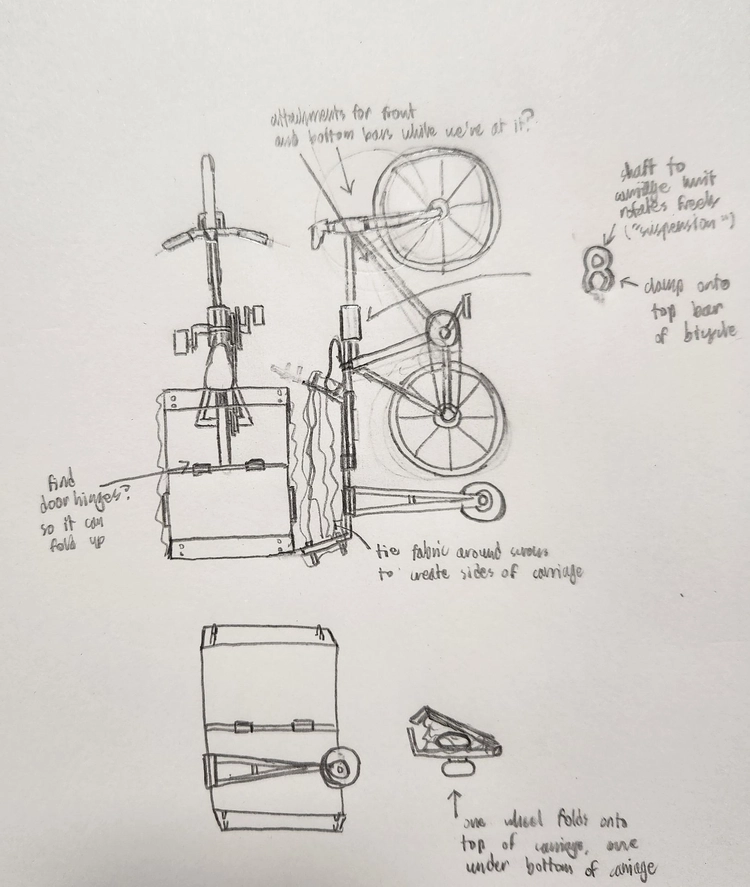 attachments for front
and bottom bars while we've at it?
shaft to
carriage unit
rotates freely
("suspension")
clamp onto
top bar
of bicycle
find
door hinges?
so it can
fold up
tie fabric around screws
to create sides of carriage
one wheel folds onto
top of carriage, one
under bottom of carriage